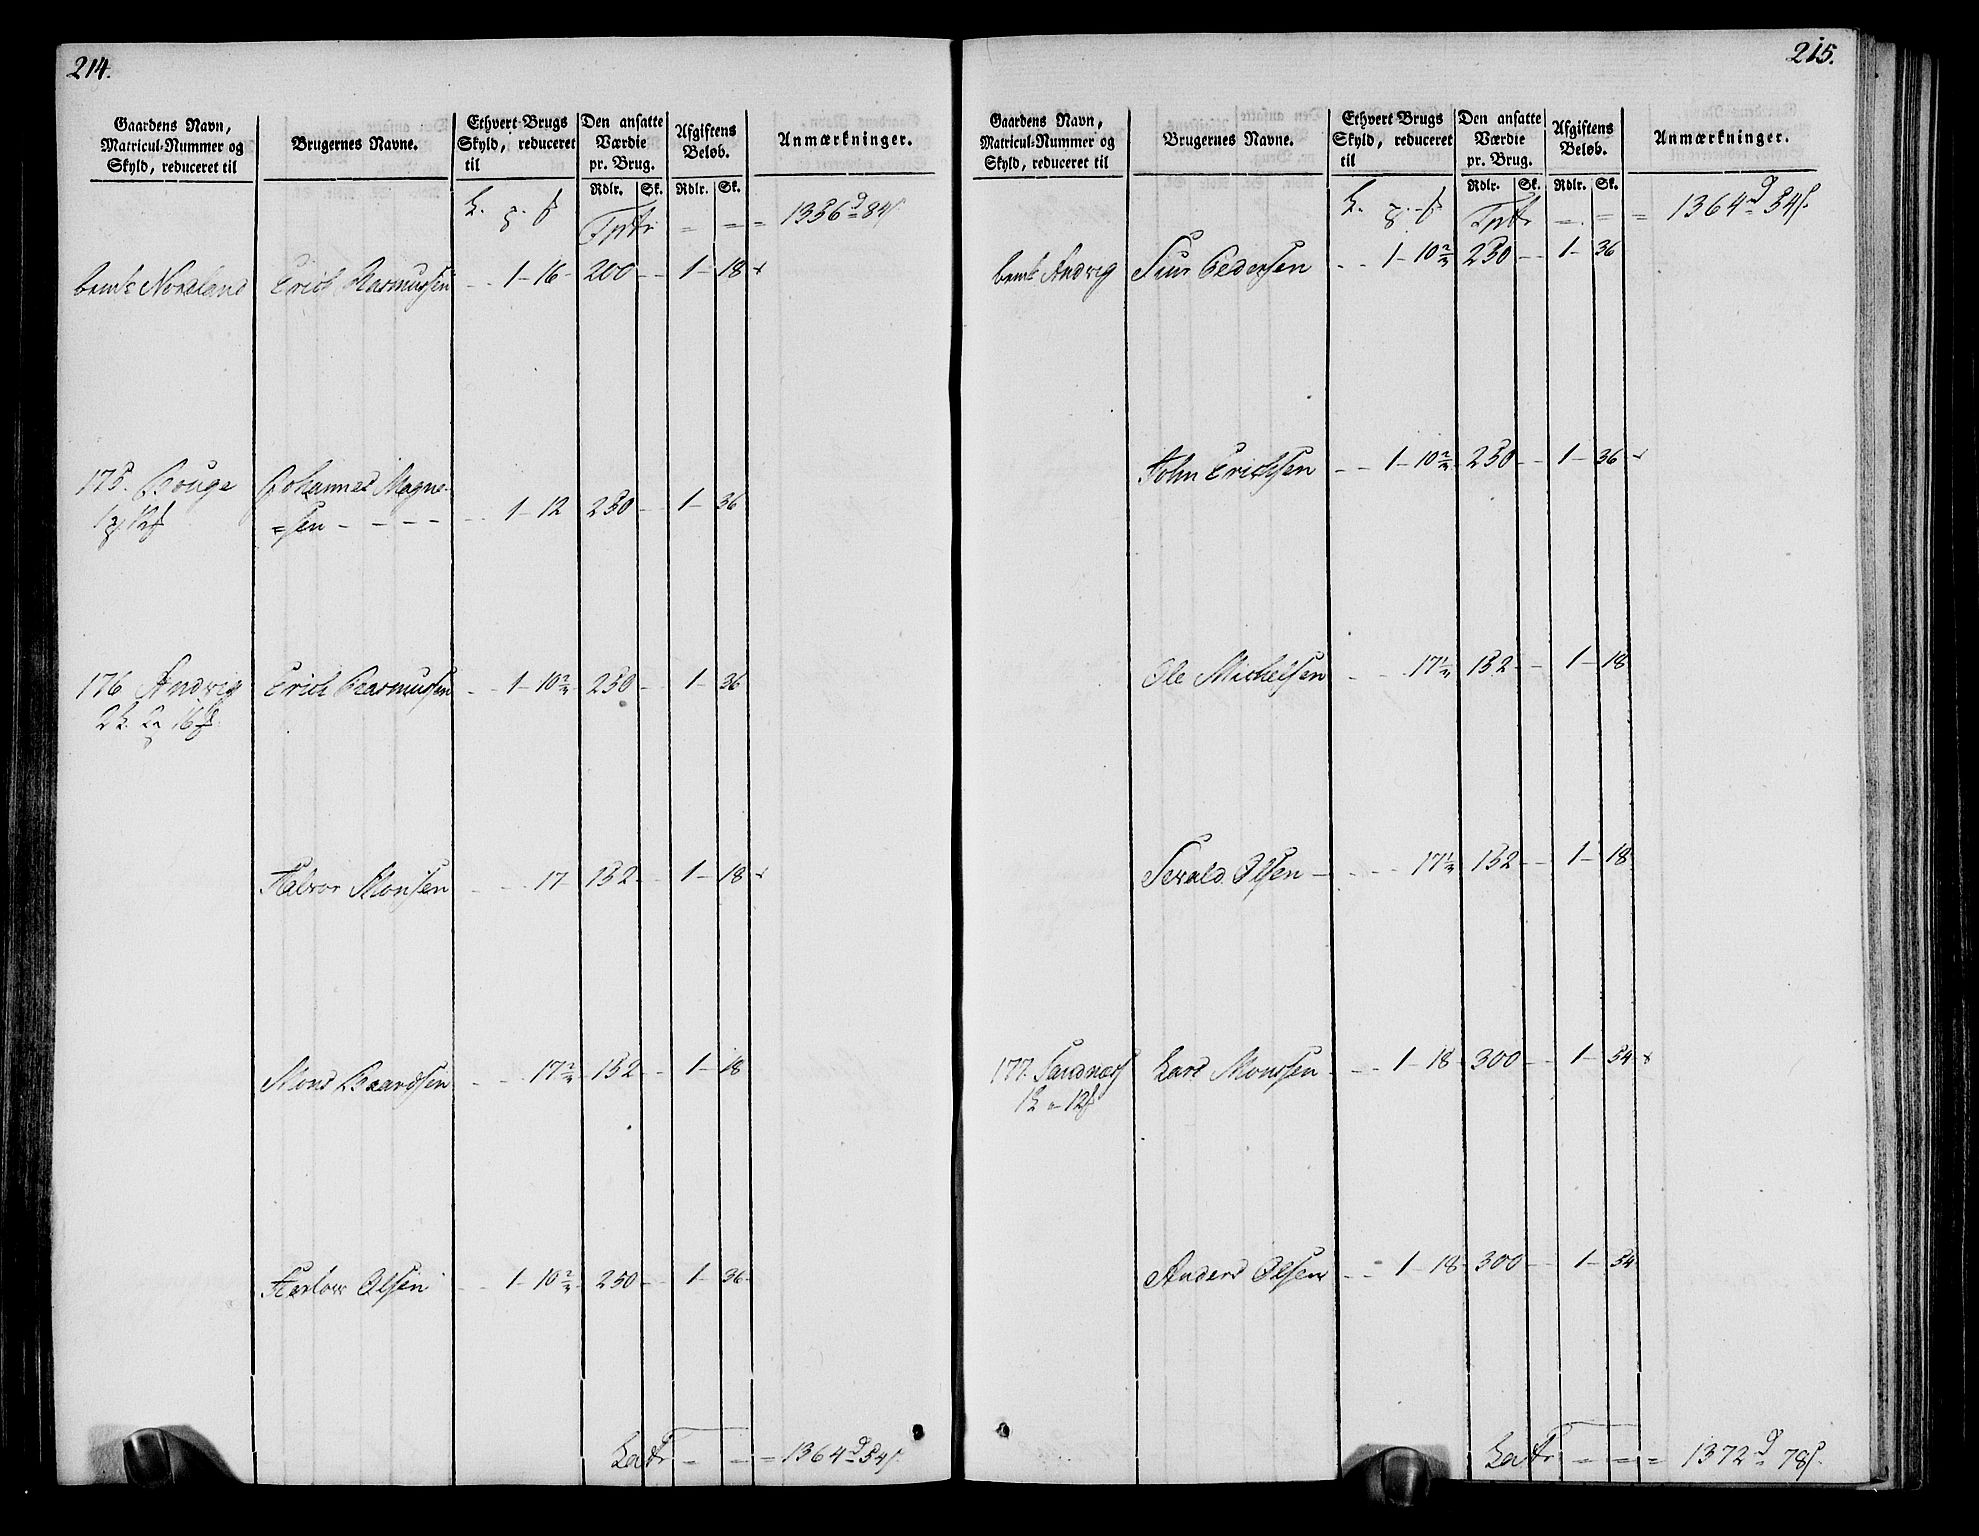 214.
Gaardens Navn,
Matricul-Nummer og
Skyld, reduceret til
Brugernes Navne.
Ethvert Brugs
Skyld, reduceret
til
Den ansatte
Værdie
pr. Brug.
Afgiftens
Beløb.
Anmærkninger.
Rdlr. Sk. Rdlr. Sk.
Tptr = = = 1356 84
Nordland Erich Rasmussen - - 1-16- 200 - - 1- 18
175. Bouge Johannes Magne-
=sen - - - - - - 1-12 250 - 1- 36
176 Andvig Erich Rasmussen - - 1-10⅔ 250 - 1- 36
Halvor Monsen - - - 17- 152 - - 1- 18
Mons Baardsen - - - 17⅔ 152 - - 1- 18
Olsen - - 1-10⅔ 250 - - 1- 36
Latr - - = 1364 54
215.
Gaardens Navn,
Matricul-Nummer og
Skyld, reduceret til
Brugernes Navne.
Ethvert Brugs
Skyld, reduceret
til
Den ansatte
Værdie
pr. Brug.
Afgiftens
Beløb.
Anmærkninger.
Rdlr. Sk. Rdlr. Sk.
Tptr = = = 1364 54
Andvig Siur Pedersen - - 1-10⅔ 250 - - 1- 36
John Erichsen - - 1-10⅔ 250 - - 1- 36
Ole Michelsen - - - 17⅓ 152 - - 1- 18
Sevald Olsen - - - - 17⅓ 152 - - 1- 18
177. Sandnæs Lars Monsen - - - 1-18 300 - - 1- 54
Anders Olsen - - 1-18 300 - - 1- 54
Latr = = = 1372 78